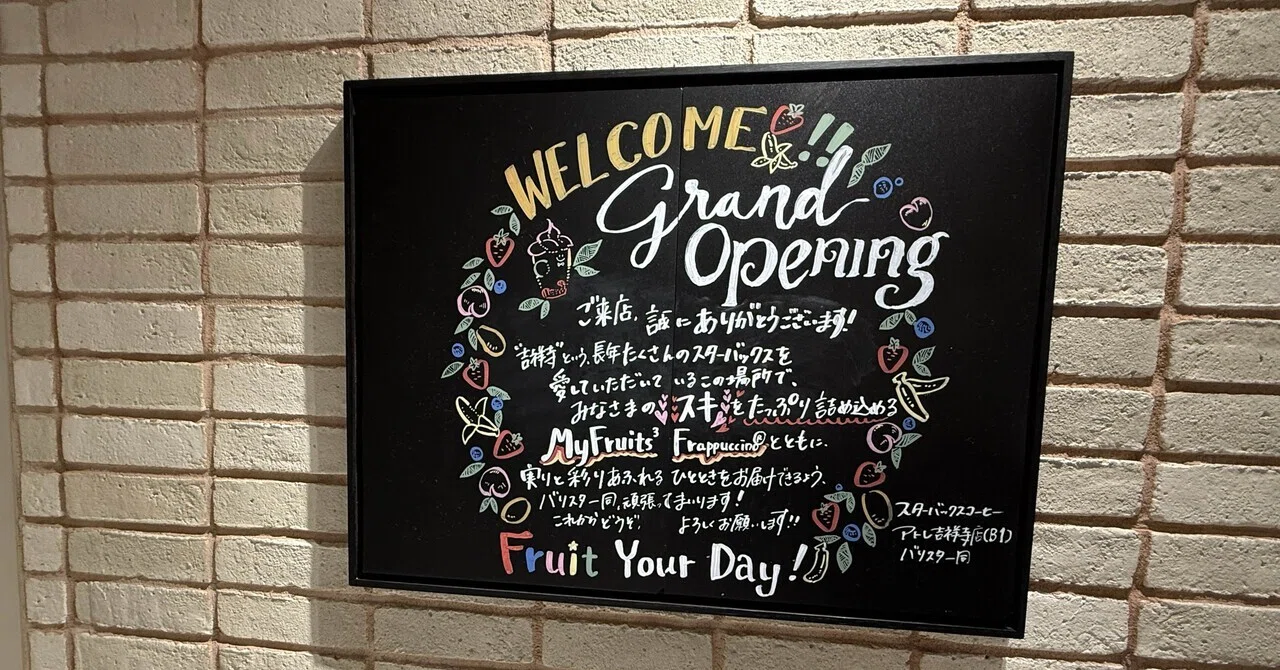 WELCOME!!
Grand
Opening
ご来店、誠にありがとうございます!
"吉祥寺"という、長年たくさんのスターバックスを
愛していただいているこの場所で、
みなさまのスキをたっぷり詰め込める
MyFruits³ Frappuccino®とともに、
実りと彩りあふれるひとときをお届けできるよう、
バリスタ一同、頑張ってまいります!
これからどうぞ、よろしくお願いします!!
Fruit Your Day!
スターバックスコーヒー
アトレ吉祥寺店(B1)
バリスタ一同